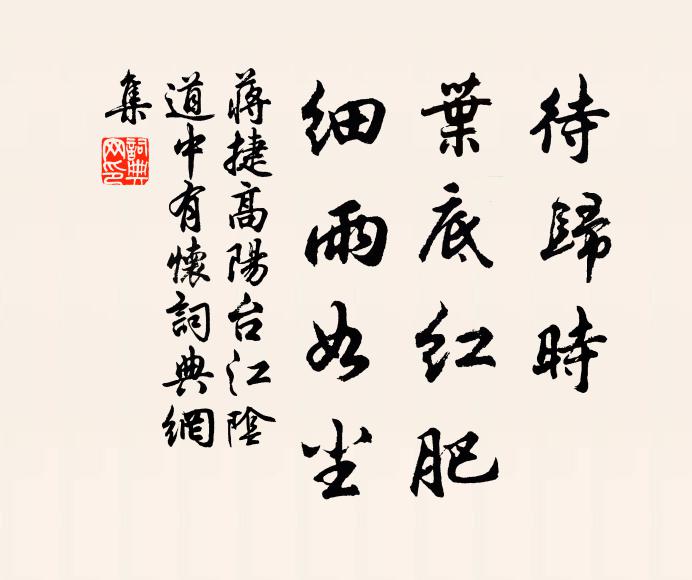 待歸時
葉底紅肥
細雨如尘
蔣捷高陽台江陰
道中有懷詞典網
集
詞典网印